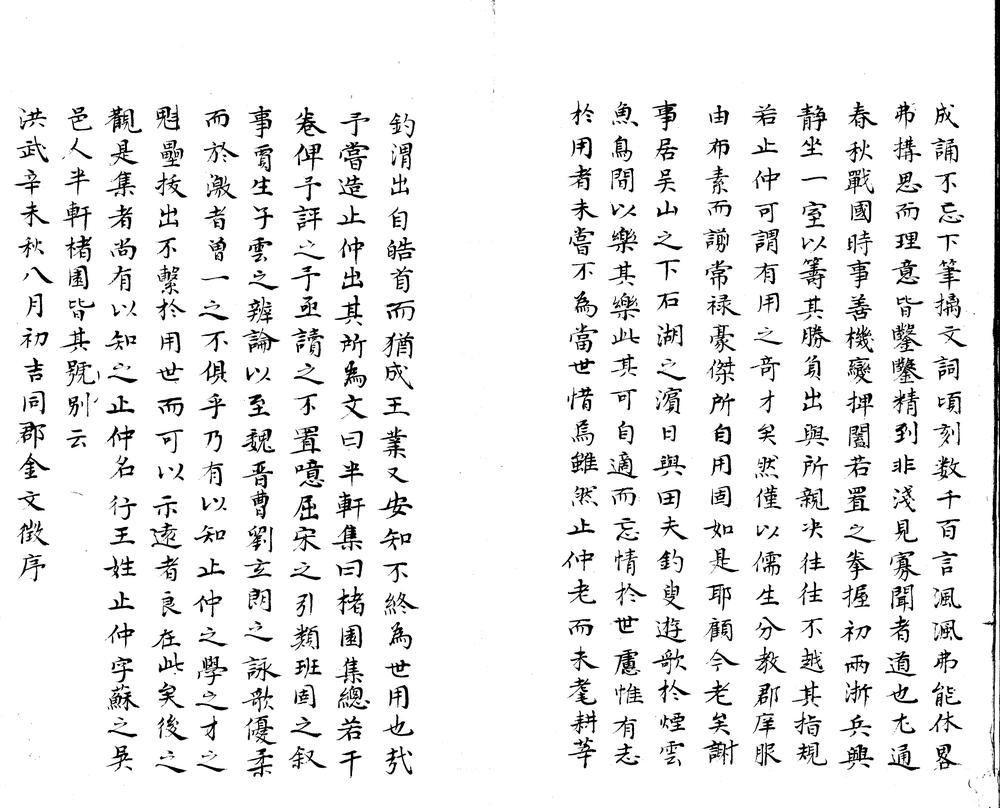 成誦不忘下筆搞文詞頃刻数千百言渢渢弗能休畧
弗搆思而理意皆鑿鑿精到非淺見寡聞者道也尤通
春秋戰國時事善機變捭闔若置之拳握初兩浙兵興
静坐一室以籌其勝負出與所親决往往不越其指規
若止仲可謂有用之竒才矣然僅以儒生分教郡庠服
由布素而謝常禄豪傑所自用固如是耶顧今老矣謝
事居吴山之下石湖之濵日與田夫釣叟遊歌於煙雲
魚鳥間以樂其樂此其可自適而忘情於世慮惟有志
於用者未嘗不為當世惜焉雖然止仲老而未耄耕莘
釣渭出自皓首而猶成王業又安知不終為世用也㢤
予嘗造止仲出其所為文曰半軒集曰楮園集總若干
卷俾予評之予亟讀之不置噫屈宋之引類班固之叙
事賈生子雲之辨論以至魏晋曹劉玄朗之詠歌優柔
而於激者曾一之不俱乎乃有以知止仲之學之才之
魁壘拔出不繫於用世而可以示遠者良在此矣後之
觀是集者尚有以知之止仲名行王姓止仲字蘇之吴
邑人半軒楮園皆其號别云
洪武辛未秋八月初吉同郡金文徴序